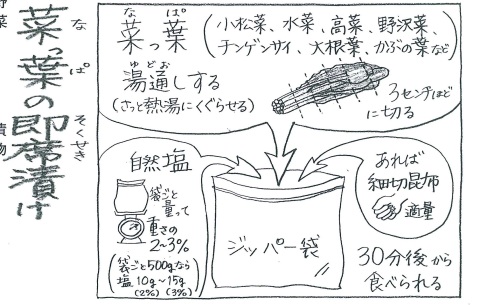 野菜
漬物
菜っ葉の即席漬け
な
ぱ
そくせき
なっぱ
菜っ葉
(小松菜、水菜、高菜、野沢菜、
チンゲンサイ、大根葉、かぶの葉など)
ゆどお
湯通しする
(さっと熱湯にくぐらせる)
3センチほど
に切る
自然塩
袋ごと
量って
重さの
2~3%
(袋ごと500gなら
塩10g~15g
(2%) (3%))
ジッパー袋
あれば
細切昆布
適量
30分後から
食べられる